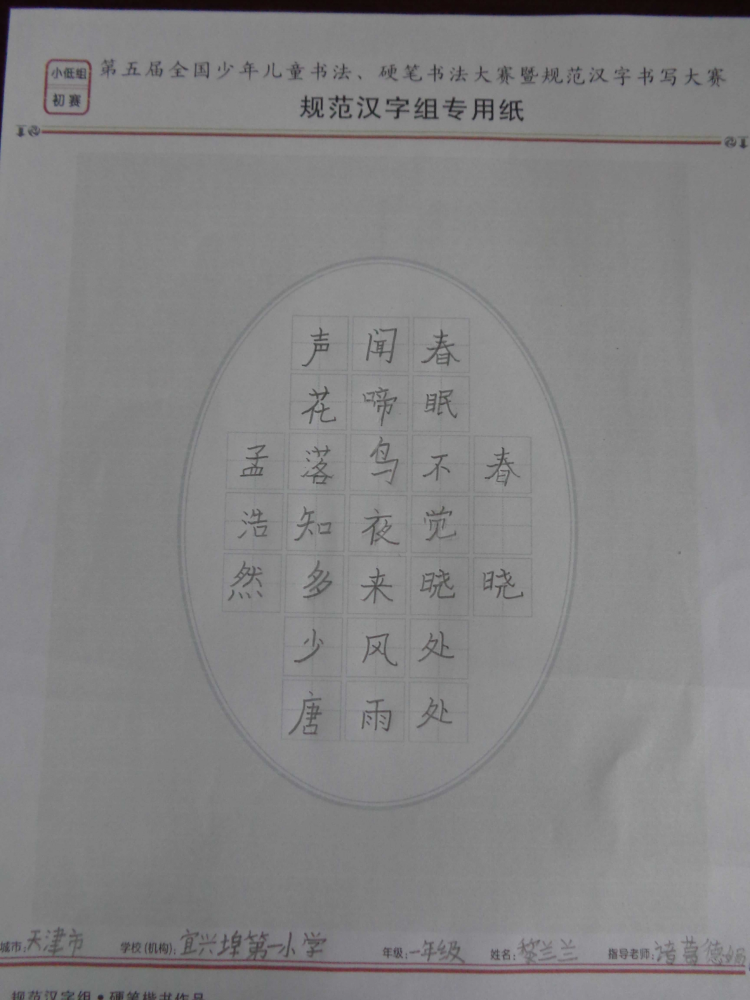 小低组
初赛
第五届全国少年儿童书法、硬笔书法大赛暨规范汉字书写大赛
规范汉字组专用纸
春晓
春眠不觉晓处处
闻啼鸟夜来风雨
声花落知多少唐
孟浩然
城市:天津市 学校(机构):宜兴埠第一小学 年级:一年级 姓名:黎兰兰 指导老师:
规范汉字组·硬笔楷书作品